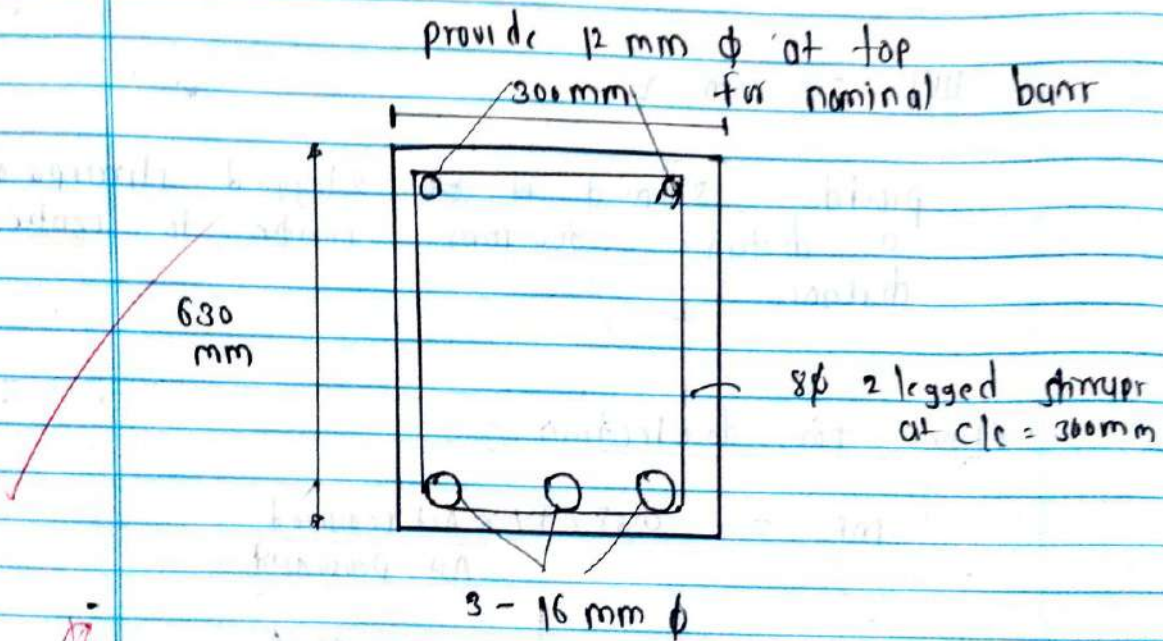 provide 12 mm ϕ at top
300mm for nominal barr
630
mm
8ϕ 2 legged stirrupr
at c/c = 300mm
3 - 16 mm ϕ